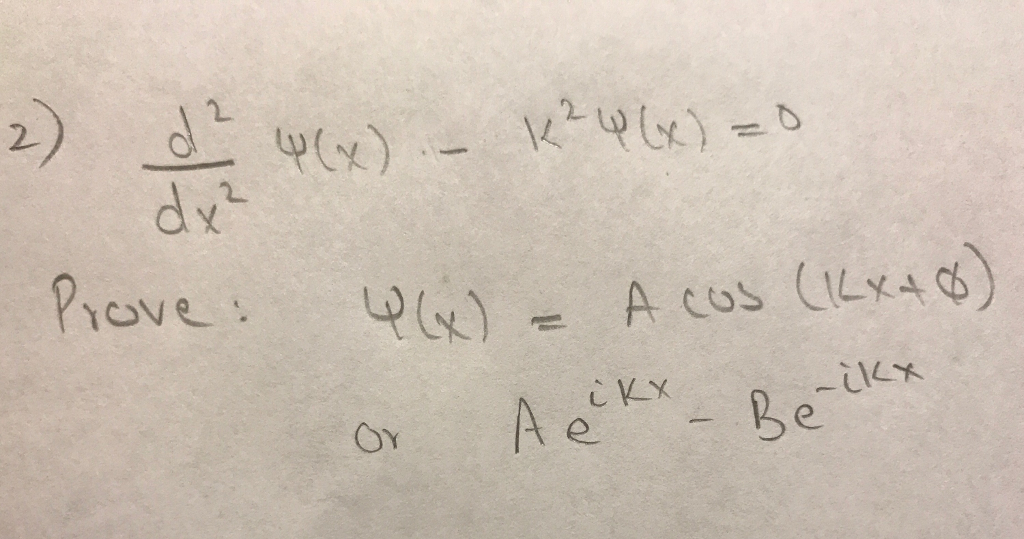 2) d²/dx² Ψ(x) - K²Ψ(x) = 0
Prove: Ψ(x) = A cos (Kx+φ)
or Ae^{iKx} - Be^{-iKx}